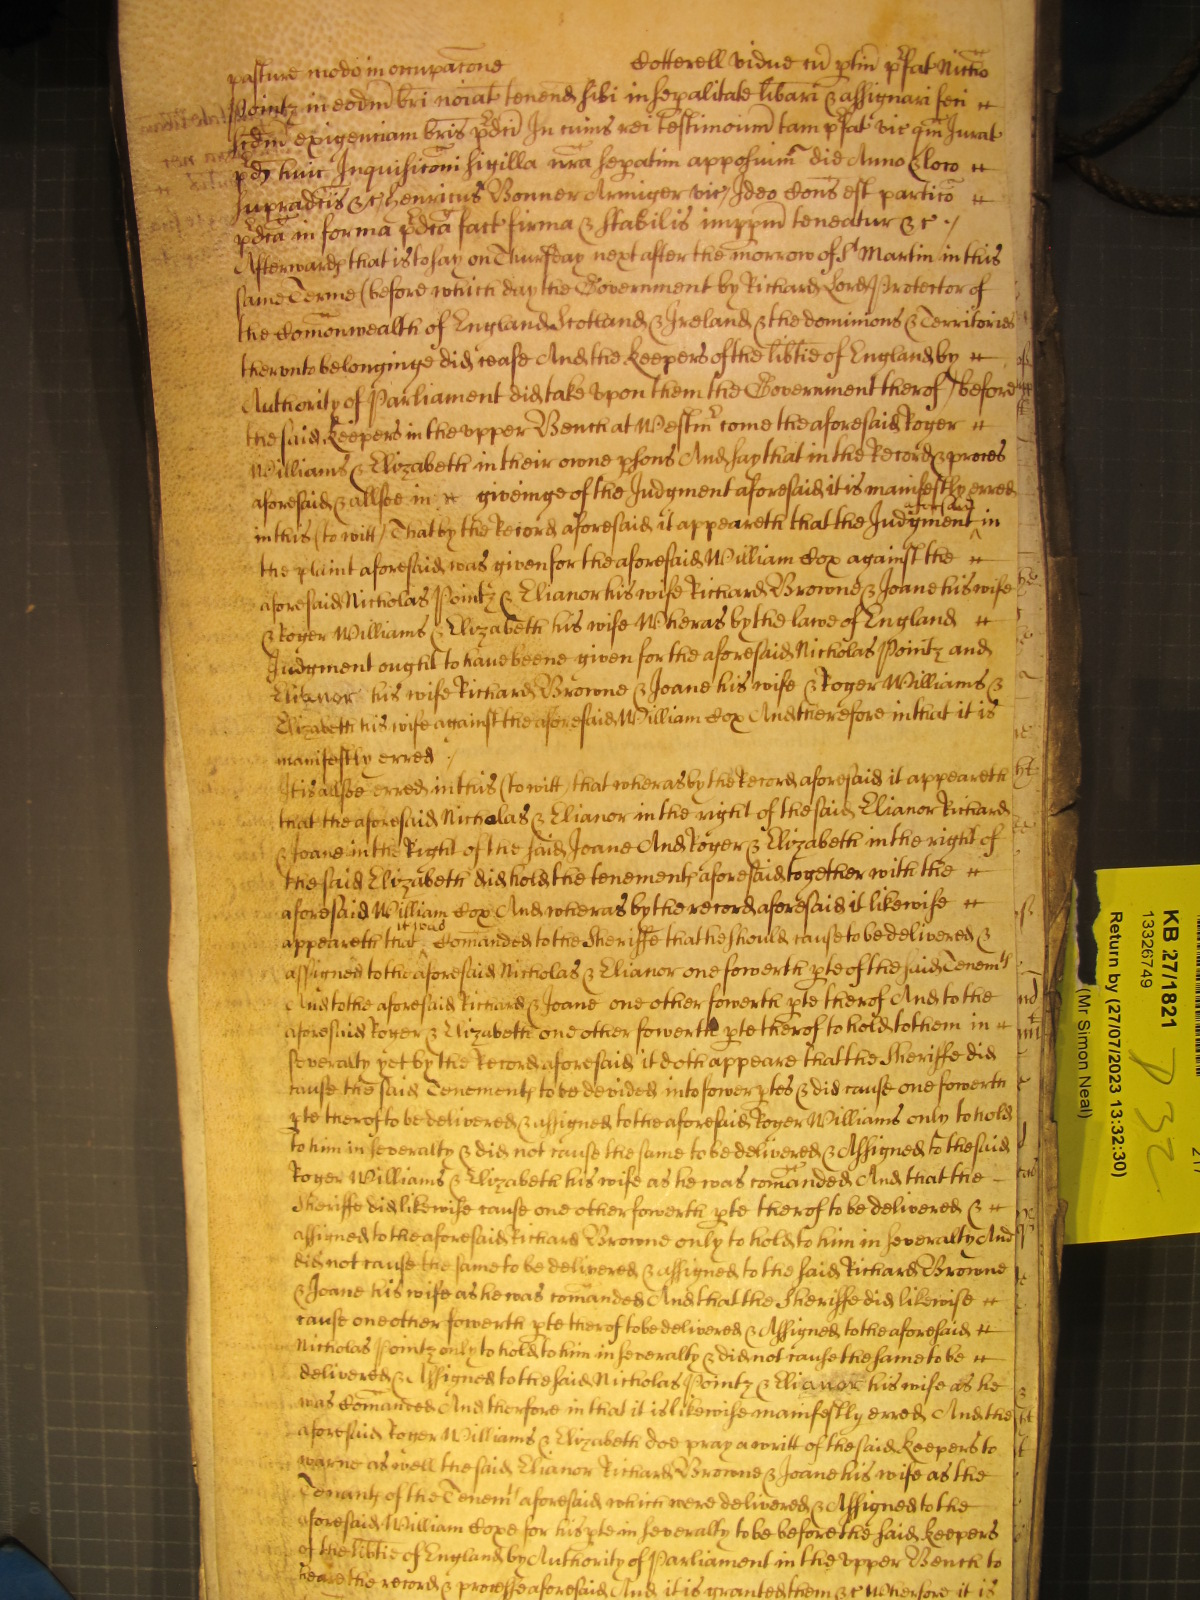 pasture modo in occupacõne Cotterell vidue cũ ptiñ p̃fat Nicho
Pointz in eodm̃ bri noĩat tenend sibi in sepalitate libari & assignari feci
scdm̃ exigenciam bris p̃dci In cuius rei testimoiũm tam p̃fat vic qm̃ Jurat
p̃d huic Inquisicõni sigilla nr̃a sepatim apposuim̃ die Anno & loco
supradcis &c henricus Bonner Armiger vic / Ideo Cons est particõ
p̃dca in forma p̃dca fact firma & stabilis imppm̃ teneatur &c /
Afterwards that is to say on Thursday next after the morrow of St Martin in this
same Terme (before which day the Government by Richard Lord Protector of
the Com̃onwealth of England Scotland & Ireland & the dominions & Territories
therunto belonginge did cease And the keepers of the lib̃tie of England by
Authority of Parliament did take vpon them the Government therof) before
the said keepers in the vpper Bench at Westmr come the aforesaid Roger
Williams & Elizabeth in their owne p̱sons And say that in the Record & proces
aforesaid & allsoe in giveinge of the Judgment aforesaid it is manifestly erred
in this (to witt) That by the Record aforesaid it appeareth that the Judgment aforesaid in
the plaint aforesaid was given for the aforesaid William Cox against the
aforesaid Nicholas Pointz & Elianor his wife Richard Browne & Joane his wife
& Roger Williams & Elizabeth his wife Wheras by the lawe of England
Judgment ought to have beene given for the aforesaid Nicholas Pointz and
Elianor his wife Richard Browne & Joane his wife & Roger Williams &
Elizabeth his wife against the aforesaid William Cox And therefore in that it is
manifestly erred /
It is allsoe erred in this (to witt) that wheras by the Record aforesaid it appeareth
that the aforesaid Nicholas & Elianor in the right of the said Elianor Richard
& Joane in the Right of the said Joane And Roger & Elizabeth in the right of
the said Elizabeth did hold the tenements aforesaid together with the
aforesaid William Cox And wheras by the record aforesaid it likewise
appeareth that it was Com̃anded to the Sheriffe that he should cause to be delivered &
assigned to the aforesaid Nicholas & Elianor one fowerth p̱te of the said Tenemts
And to the aforesaid Richard & Joane one other fowerth p̱te therof And to the
aforesaid Roger & Elizabeth one other fowerth p̱te therof to hold to them in
severalty yet by the Record aforesaid it doth appeare that the Sheriffe did
cause the said Tenements to be devided into fower p̱tes & did cause one fowerth
p̱te therof to be delivered & assigned to the aforesaid Roger Williams only to hold
to him in severalty & did not cause the same to be delivered & Assigned to the said
Roger Williams & Elizabeth his wife as he was com̃anded And that the
Sheriffe did likewise cause one other fowerth p̱te therof to be delivered &
assigned to the aforesaid Richard Browne only to hold to him in severalty And
did not cause the same to be delivered & assigned to the said Richard Browne
& Joane his wife as he was com̃anded And that the Sheriffe did likewise
cause one other fowerth p̱te therof to be delivered & Assigned to the aforesaid
Nicholas Pointz only to hold to him in severalty & did not cause the same to be
delivered & Assigned to the said Nicholas Pointz & Elianor his wife as he
was Com̃anded And therfore in that it is likewise manifestly erred And the
aforesaid Roger Williams & Elizabeth doe pray a writt of the said keepers to
warne as well the said Elianor Richard Browne & Joane his wife as the
Tenants of the Tenemts aforesaid which were delivered & Assigned to the
aforesaid William Coxe for his p̱te in severalty to be before the said keepers
of the lib̃tie of England by Authority of Parliament in the vpper Bench to
heare the record & processe aforesaid And it is granted them &c Wherfore it is
KB 27/1821
13326749
Return by (27/07/2023 13:32:30)
(Mr Simon Neal)